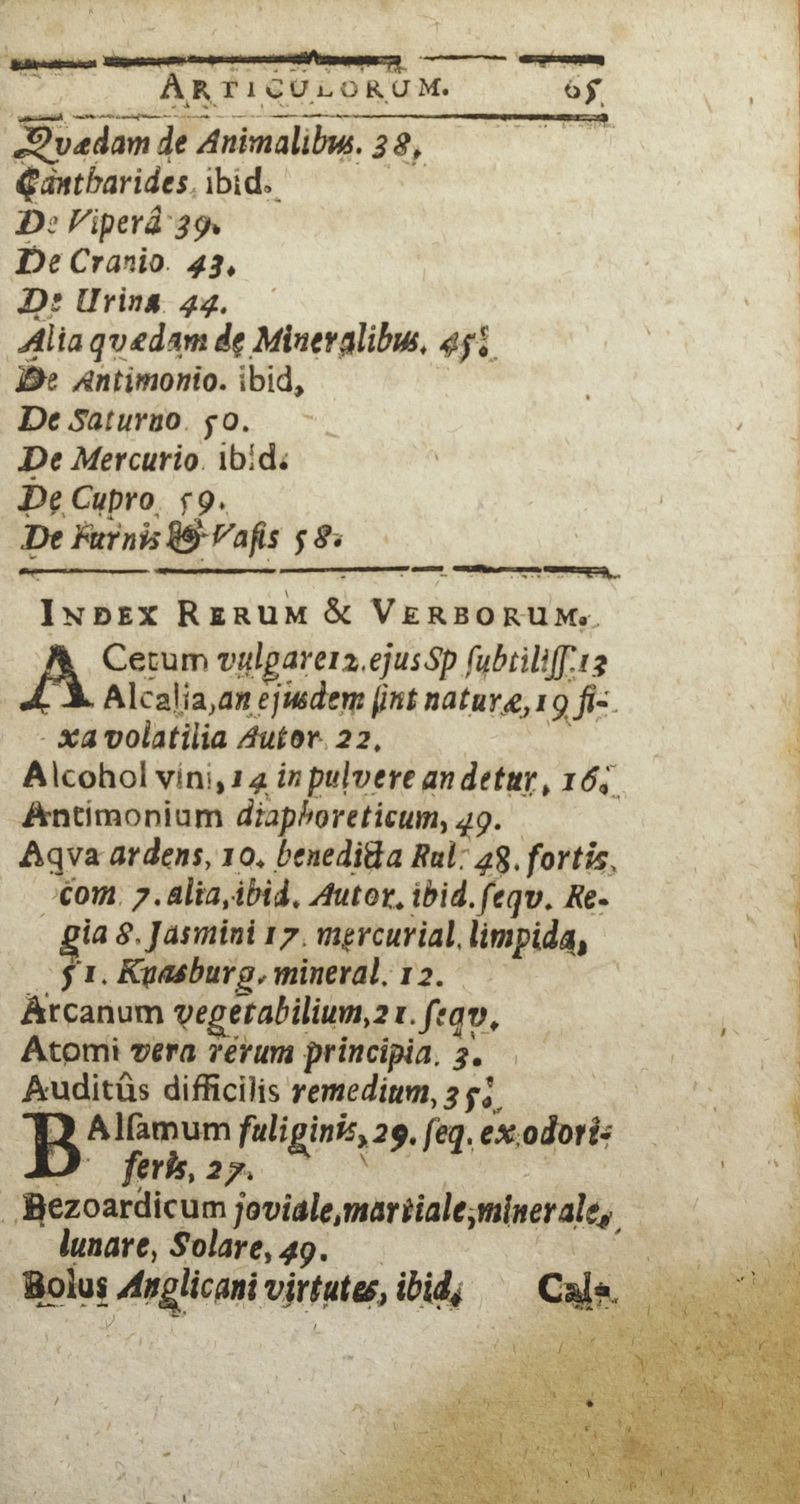 ARTICULORUM. 65
Qvædam de Animalibus. 38,
Cantharides. ibid.
De Viperâ 39.
De Cranio. 43.
De Urina 44.
Alia qvædam de Mineralibus. 45.
De Antimonio. ibid,
De Saturno. 50.
De Mercurio. ibid.
De Cupro 59.
De Furnis & Vasis 58.
INDEX RERUM & VERBORUM.
ACetum vulgare 12. ejus Sp ſubtiliſſ. 13
Alcalia, an ejusdem ſint naturæ, 19 fi-
xa volatilia Autor 22.
Alcohol vini, 14 in pulvere an detur, 16.
Antimonium diaphoreticum, 49.
Aqva ardens, 10. benedicta Rul. 48. fortis,
com 7. alia, ibid. Autor. ibid. ſeqv. Re-
gia 8. Jasmini 17. mercurial. limpida,
51. mineral. 12.
Arcanum vegetabilium, 21. ſeqv.
Atomi vera rerum principia. 3.
Auditûs difficilis remedium, 35.
BAlſamum fuliginis, 29. ſeq. ex odori-
feris, 27.
Bezoardicum joviale, martiale, minerale,
lunare, Solare, 49.
Bolus Anglicani virtutes, ibid, Cal-